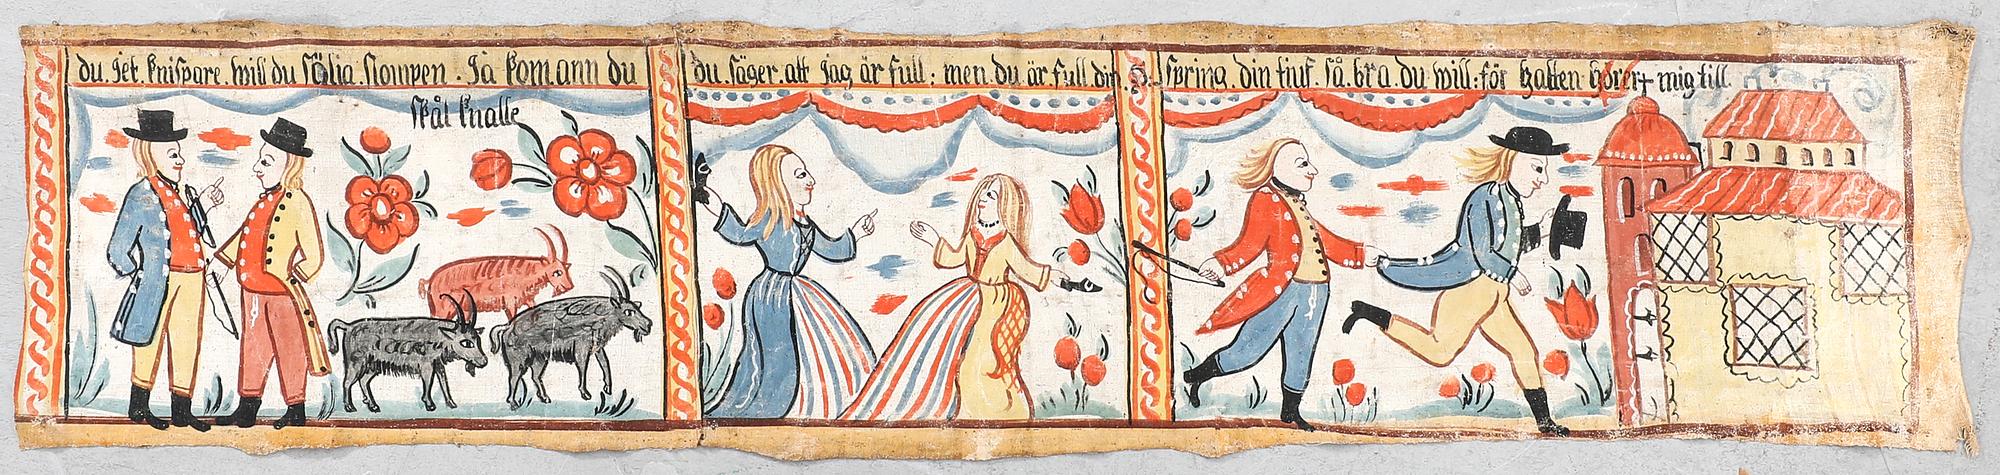 du. get. knispare. will du sälia. slompen. Ja kom. ann du
skål knalle
du. säger. att jag är full; men. du. är full din
spring. din tiuf. så. bra. du. will: för hatten hörer mig till.